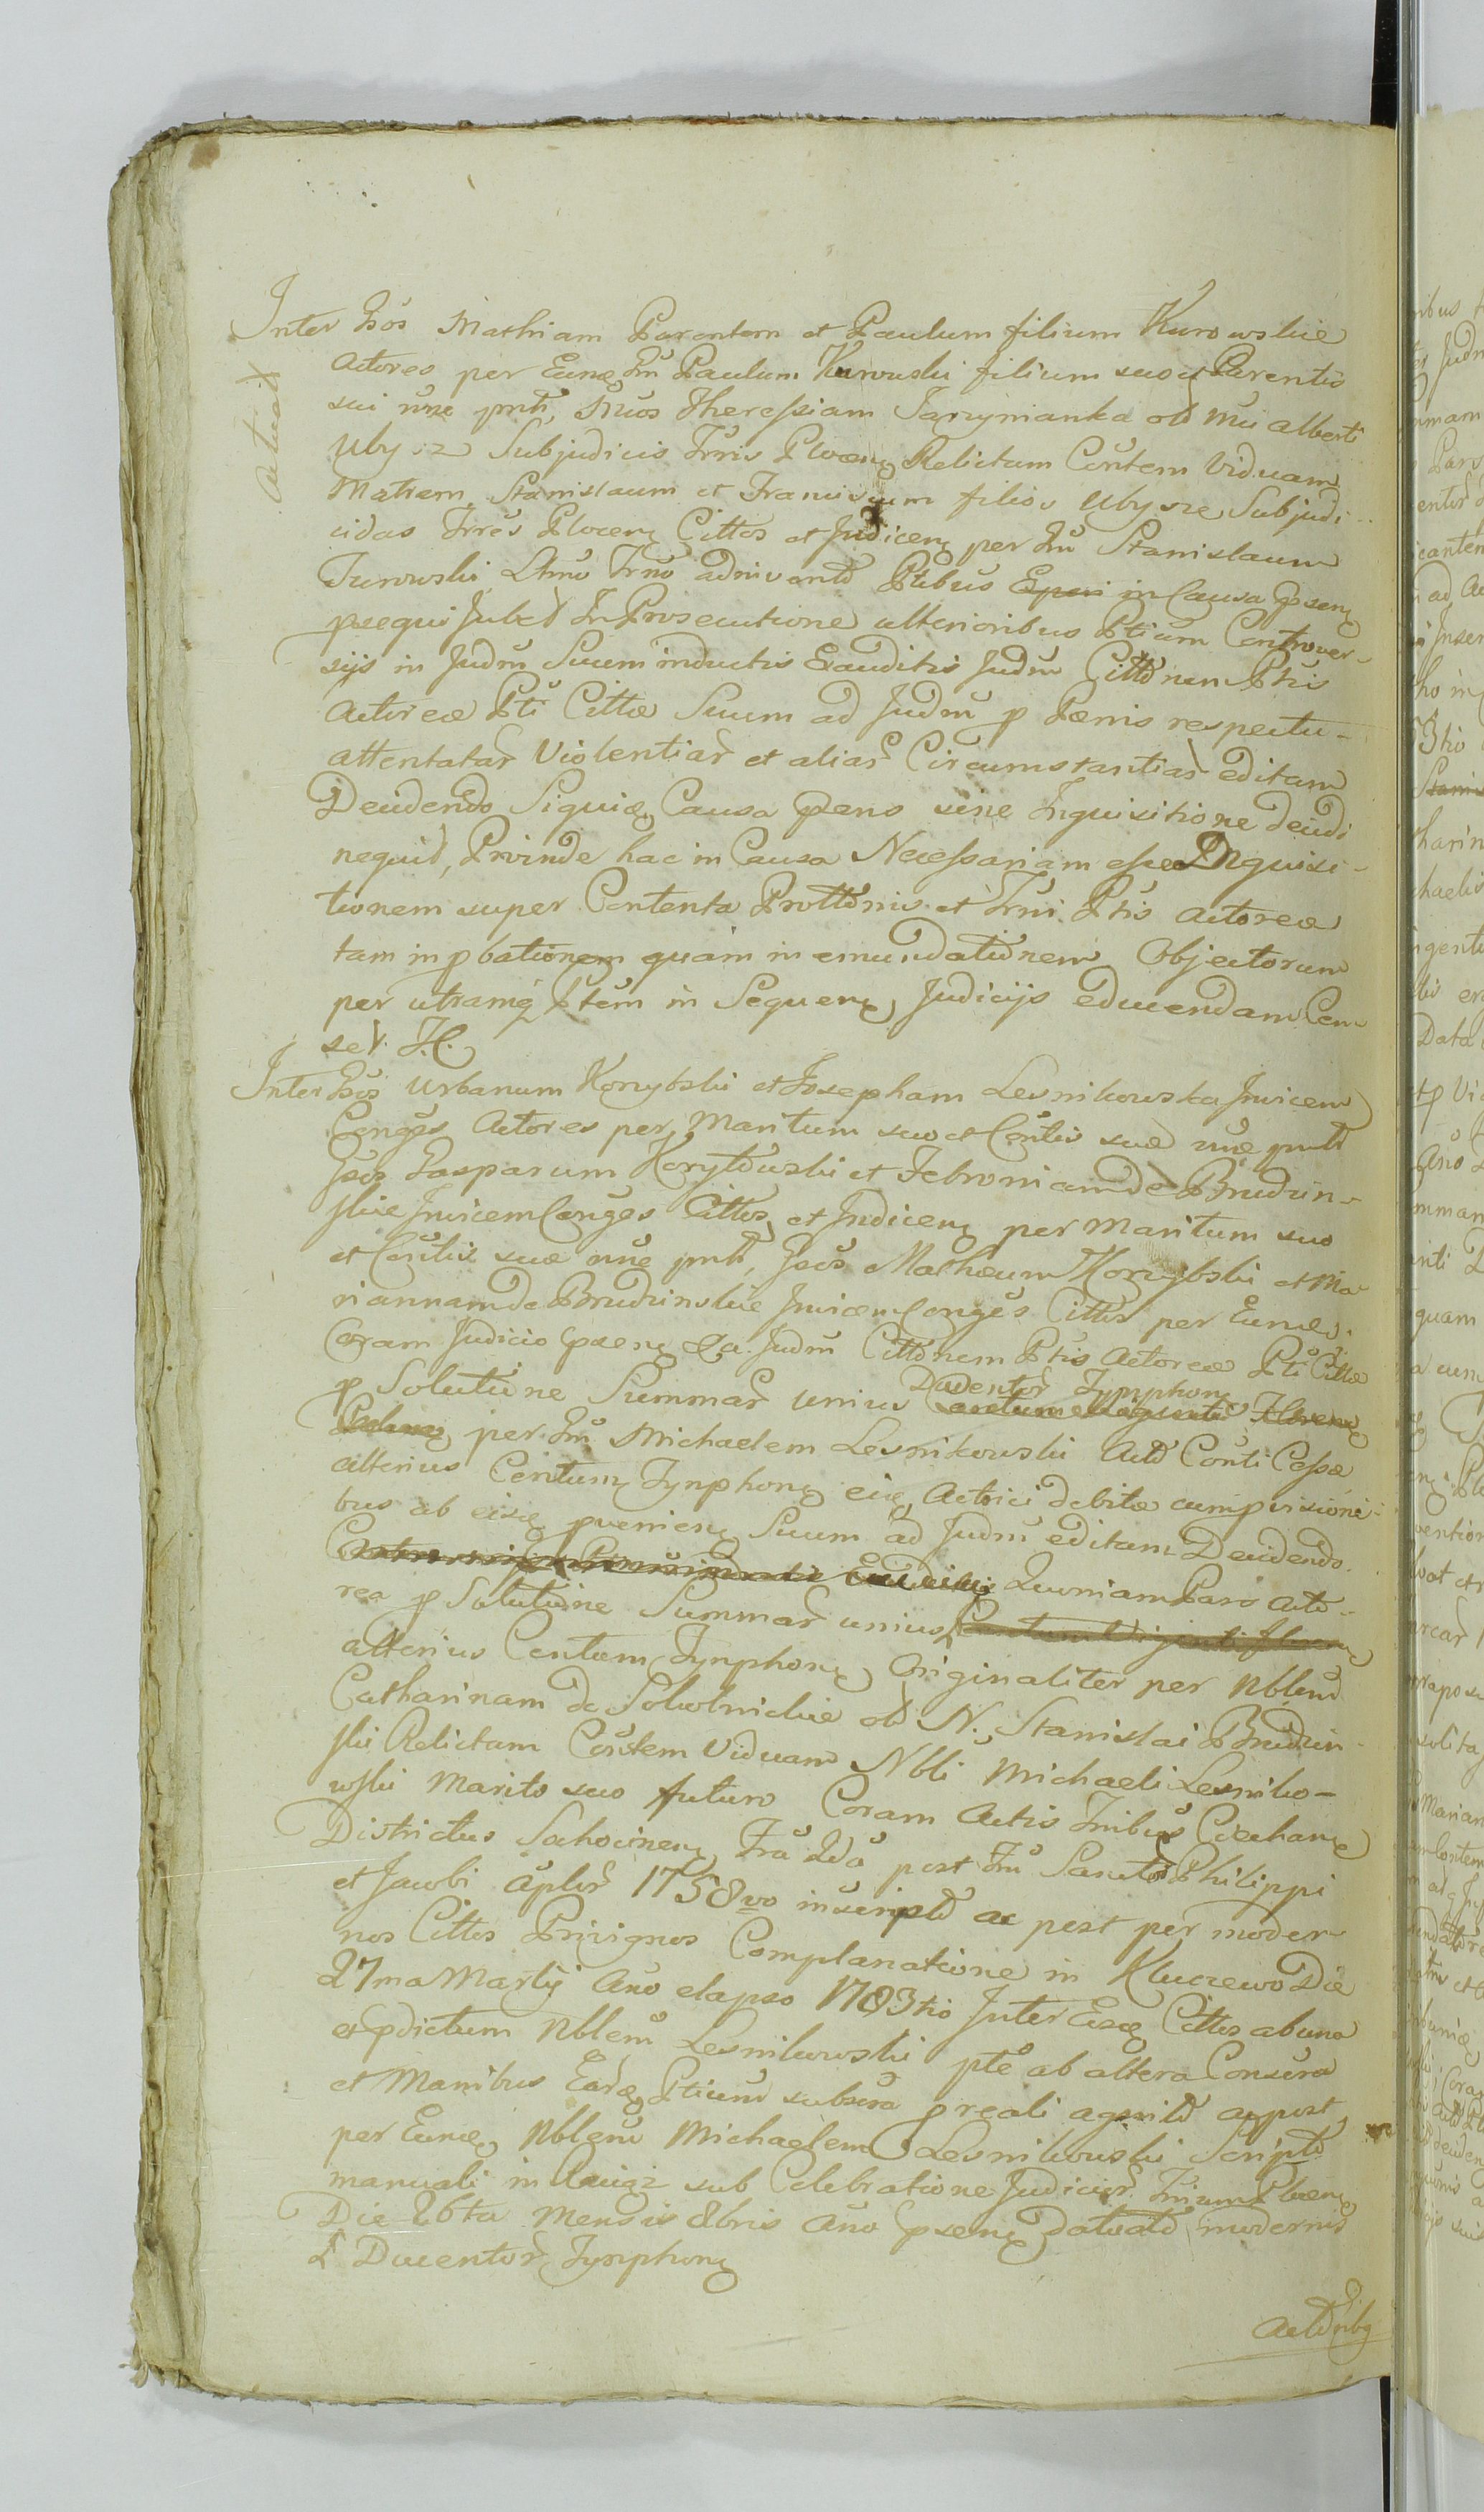 Inter Gsos Mathiam Parentem et Paulum filium Kurowskie
Actores per Eunq Gsm Paulum Kurowski filium suo et Parentis
sui nne pntt, Mcos Theressiam Jarzynianka olim Mci Alberti
Ubysz Subjudicis Trris Plocen Relictam Contem Viduam
Matrem Stanislaum et Franciscum filios Ubysze Subjudi
cidas Trres Plocen Cittos et Judicen per Gsm Stanislaum
Turowski Ltmo Trno adniventt Ptibus in Causa Psen
psequi Jubet In Prosecutione ulterioribus Ptium Controver-
sijs in Judm Suum inductis Exauditis Judm Cittonem Ptis
Actoreæ Pti Cittæ Suum ad Judm p Pænis respectu-
attentatar Violentiar et aliar Circumstantiar editam
Decidendo Siquiæ Causa Psens sine Inquisitione decidi
nequit, Proinde hac in Causa Necessariam esse Inquisi-
tionem super Contenta Prottonis et Trni Ptis Actoreæ
tam in pbationem quam in emundationem Objectorum
per utramq Ptem in Sequen Judicijs educendam Cen
set. J.C.
Inter Gsos Urbanum Korzybski et Josepham Lesnikowska Invicem
Conges Actores per Maritum suo et Contis suæ nne pntt
Gsos Gasparum Korzybski et Febroniam de Brudzin-
skie Invicem Conges Cittos et Judicen per Maritum suo
et Contis suæ nne pntt, Gsos Mathæum Korzybski et Ma
riannam de Brudzinskie Invicem Conges Cittos per Eund.
Coram Judicio Psen &a. Judm Cittonem Ptis Actoreæ Pti Cittæ
p Solutione Summar unius Ducentor Tynphon Centum Viginti Floren
per Gsm Michaelem Lesnikowski Actt Conti Cessæ
alterius Centum Tynphon eiq Actrici debitæ cum pvisioni-
bus ab eisq pvenien Suum ad Judm editam Decidendo.
Quoniam Pars Acto-
rea p Solutione Summar unius Centum Viginti floren
alterius Centum Tynphon Originaliter per Nblem
Catharinam de Sokolnickie olim N. Stanislai Brudzin
ski Relictam Contem Viduam Nbli Michaeli Lesniko-
wski Marito suo futuro Coram Actis Trribus Ciechan
Districtus Sochocinen Fra 2da post Fm Sanctor Philippi
et Jacobi Aplor 1758vo inscriptt ac post per moder
nos Cittos Privignos Complanatione in Kluczewo Die
27ma Martij Ano elapso 1783tio Inter Eosq Cittos ab una
et pdictum Nblem Lesnikowski pte ab altera Conscra
et Manibus Eardq Ptium subscra p reali agnitt ac post
per Eunq Nblem Michaelem Lesnikowski Scriptt
manuali in Raciąz sub Celebratione Judicior Trrium Plocen
Die 26ta Mensis 8bris Ano Psen datoatt modernis
Ł Ducentor Tynphon
Acttribg